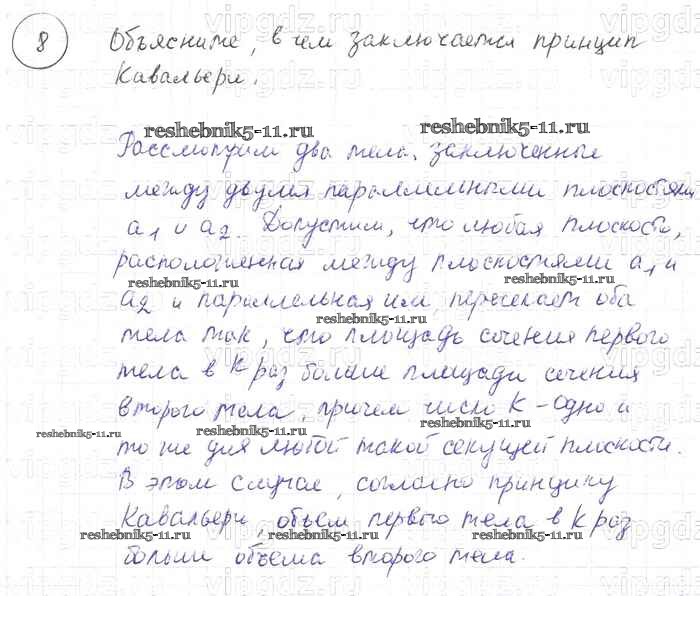 8 Объясните, в чем заключается принцип
Кавальери.
reshebnik5-11.ru reshebnik5-11.ru
Рассмотрим два тела, заключенные
между двумя параллельными плоскостями
a1 и a2. Допустим, что любая плоскость,
расположенная между плоскостями a1 и
reshebnik5-11.ru reshebnik5-11.ru
a2 и параллельная им, пересекает оба
reshebnik5-11.ru
тела так, что площадь сечения первого
тела в K раз больше площади сечения
второго тела, причем число K – одно и
reshebnik5-11.ru reshebnik5-11.ru
то же для любой такой секущей плоскости.
В этом случае, согласно принципу
Кавальери, объем первого тела в K раз
reshebnik5-11.ru reshebnik5-11.ru
больше объема второго тела.